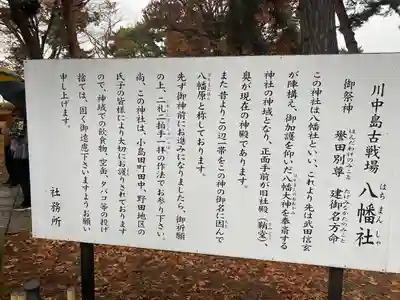 川中島古戦場 八幡社
はちまんしゃ
御祭神 誉田別尊 建御名方命
ほんだわけのみこと たけみなかたのみこと
この神社は八幡社といい、これより先は武田信玄
が陣構え、御加護を仰いだ八幡大神を奉斎する
神社の神域となり、正面手前が旧社殿（鞘堂）
奥が現在の神殿であります。
また昔よりこの辺一帯をこの神の御名に因んで
八幡原と称しております。
先ず御神前にお進みになりましたら、御祈願
の上、二礼二拍手一拝の作法でお参り下さい。
尚、この神社は、小島田町田中、野田地区の
氏子の皆様により大切にお護りされております
ので、神域での飲食物、空缶、タバコ等の投げ
捨ては、固く御遠慮下さいますようお願い
申し上げます。
社務所